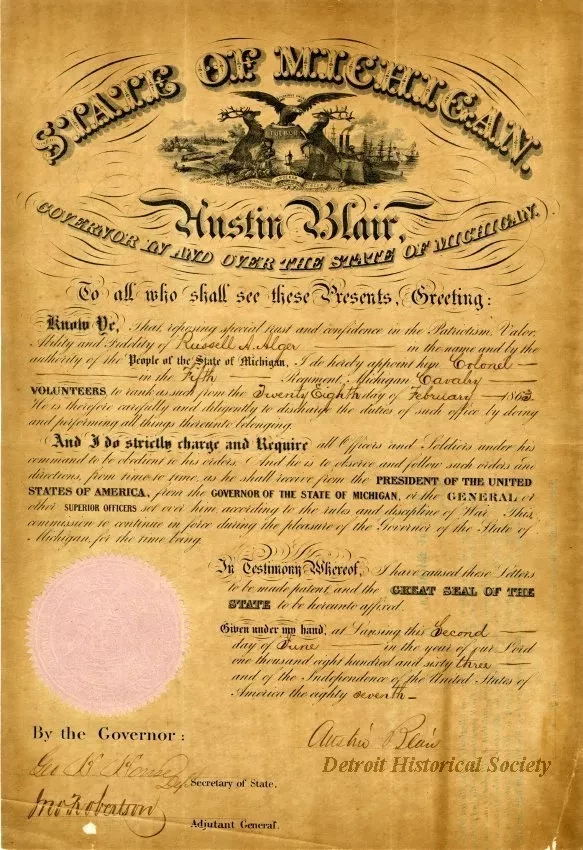 STATE OF MICHIGAN.
TUEBOR
Austin Blair,
GOVERNOR IN AND OVER THE STATE OF MICHIGAN.
To all who shall see these Presents, Greeting:
Know Ye, That, reposing special trust and confidence in the Patriotism, Valor,
Ability and Fidelity of Russell A. Alger in the name and by the
authority of the People of the State of Michigan, I do hereby appoint him Colonel
in the Fifth Regiment Michigan Cavalry
VOLUNTEERS, to rank as such from the Twenty Eighth day of February 1863.
He is therefore carefully and diligently to discharge the duties of such office by doing
and performing all things thereunto belonging.
And I do strictly charge and Require all Officers and Soldiers under his
command to be obedient to his orders. And he is to observe and follow such orders and
directions, from time to time, as he shall receive from the PRESIDENT OF THE UNITED
STATES OF AMERICA, from the GOVERNOR OF THE STATE OF MICHIGAN, or the GENERAL or
other SUPERIOR OFFICERS set over him, according to the rules and discipline of War. This
commission to continue in force during the pleasure of the Governor of the State of
Michigan, for the time being.
In Testimony Whereof, I have caused these Letters
to be made patent, and the GREAT SEAL OF THE
STATE to be hereunto affixed.
Given under my hand, at Lansing this Second
day of June in the year of our Lord
one thousand eight hundred and sixty three
and of the Independence of the United States of
America the eighty seventh
By the Governor:
Austin Blair
Detroit Historical Society
Geo
Secretary of State.
Jno Robertson
Adjutant General.